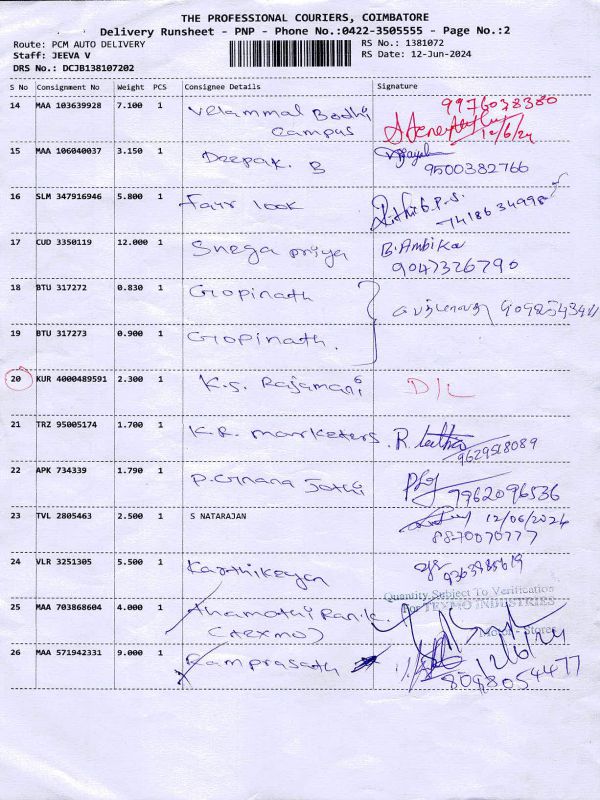 THE PROFESSIONAL COURIERS, COIMBATORE
Delivery Runsheet - PNP - Phone No.:0422-3505555 - Page No.:2
Route: PCM AUTO DELIVERY RS No.: 1381072
Staff: JEEVA V RS Date: 12-Jun-2024
DRS No.: DCJB138107202
S No Consignment No Weight PCS Consignee Details Signature
14 MAA 103639928 7.100 1 Velammal Bodhi 9976038380
Campus 12/6/24
15 MAA 106040037 3.150 1 Deepak. B
9500382766
16 SLM 347916946 5.800 1 Fair look
7418634998
17 CUD 3350119 12.000 1 Snega priya B. Ambika
9047326790
18 BTU 317272 0.830 1 Gopinath
19 BTU 317273 0.900 1 Gopinath.
20 KUR 4000489591 2.300 1 K.S. Rajamani D/L
21 TRZ 95005174 1.700 1 K.R. marketers. R. latha
9629518089
22 APK 734339 1.790 1 P. Gnana Jothi
7962096536
23 TVL 2805463 2.500 1 S NATARAJAN 12/06/2024
8870070777
24 VLR 3251305 5.500 1 Karthikeyan
Quantity Subject To Verification
For TEXMO INDUSTRIES
25 MAA 703868604 4.000 1 Anamothi Rani. K.
(texmo) Motor - Stores
26 MAA 571942331 9.000 1 Ramprasath 12/6/24
8098054477